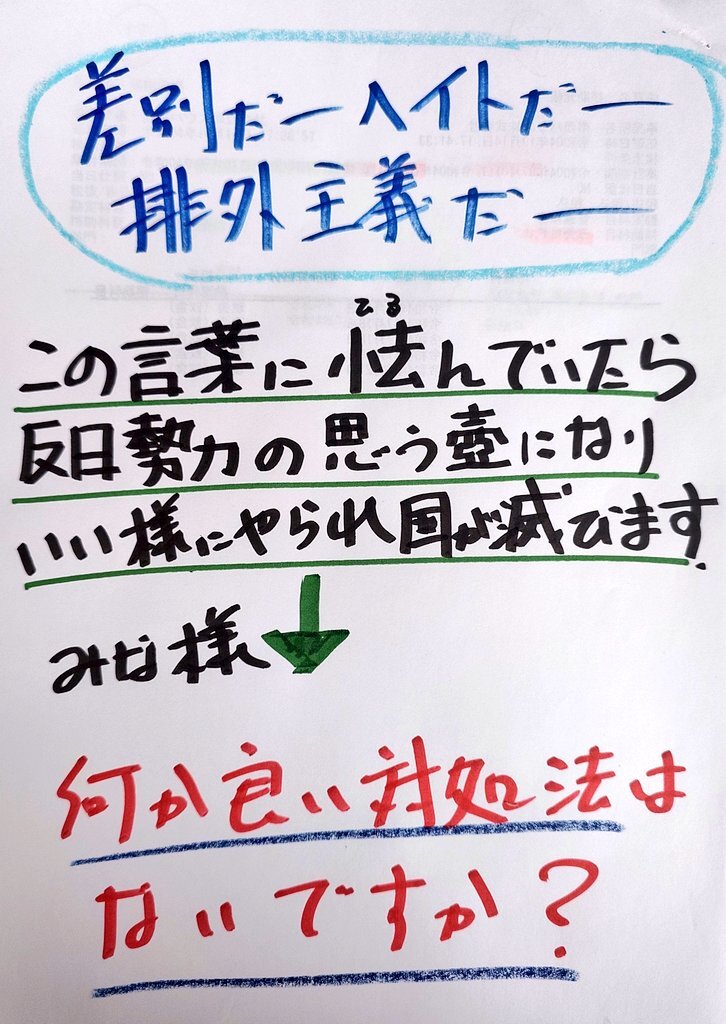 差別だーヘイトだー
排外主義だー
こる
この言葉に怯んでいたら
反日勢力の思う壺になり
いい様にやられ国が滅びます.
みな様
何か良い対処法は
ないですか?